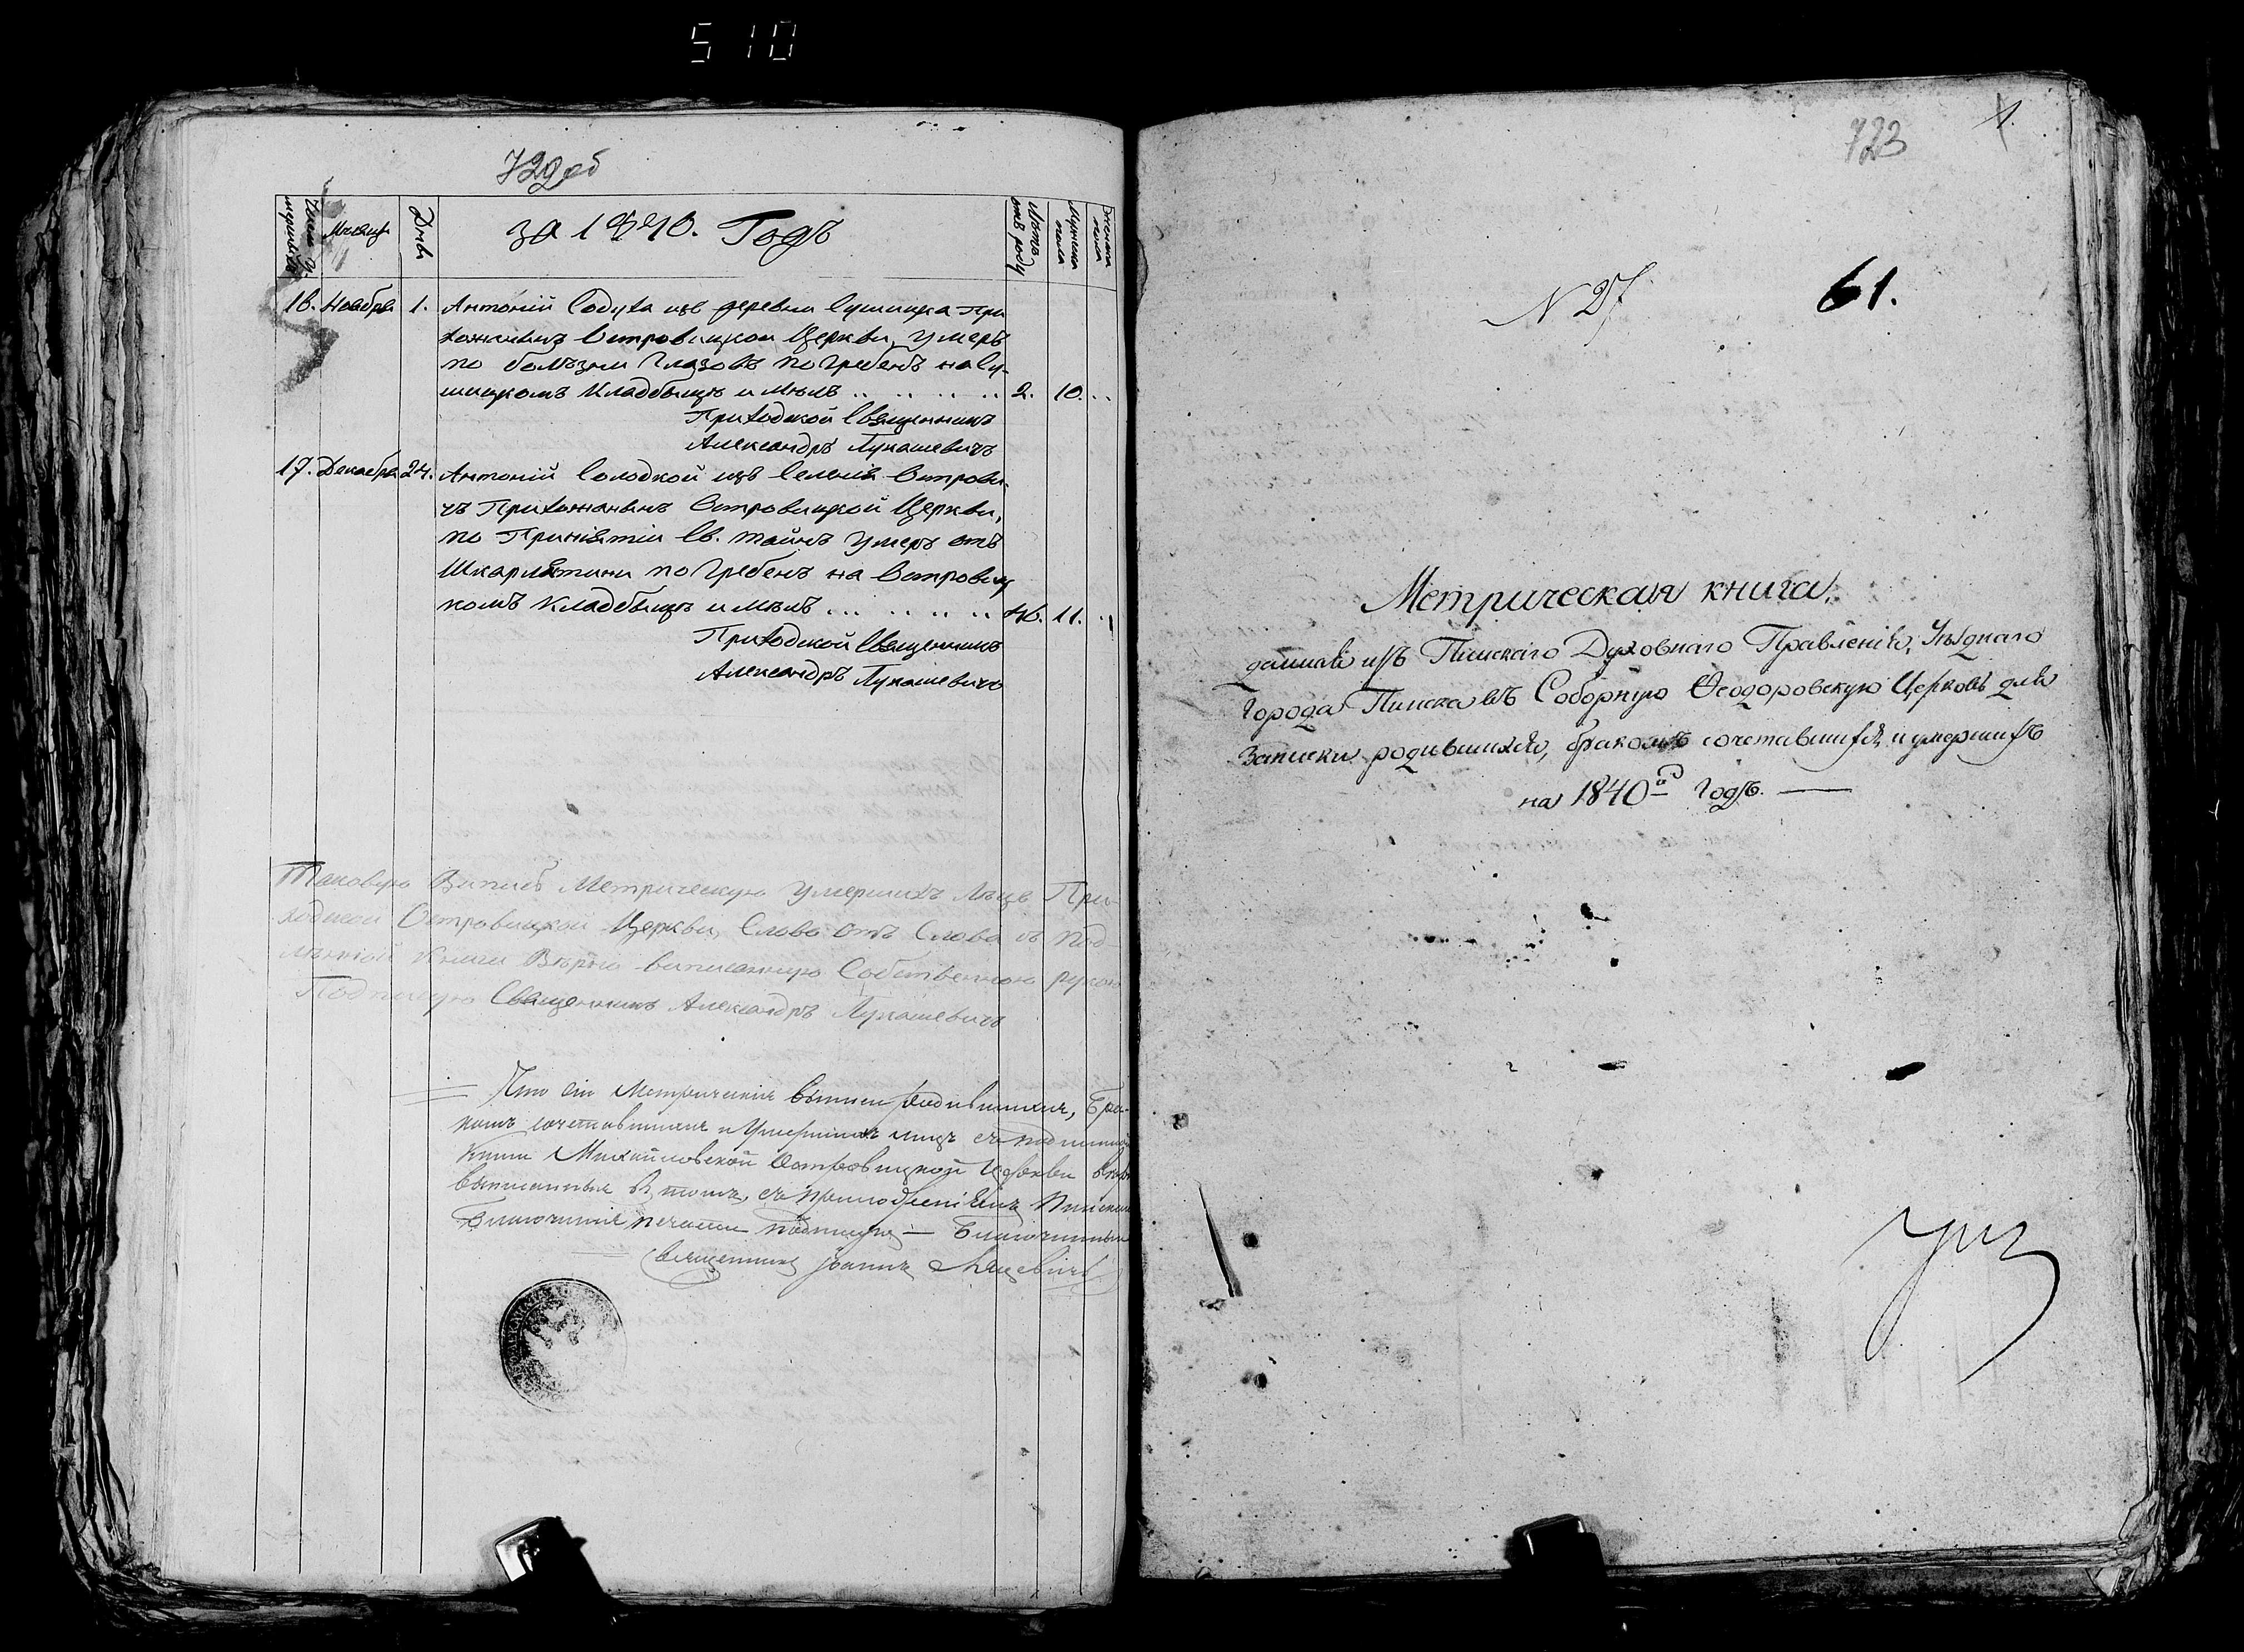 510
722 об
Число умершихъ
Месяцъ
День
за 1840. Годъ
Лѣта отъ роду
Мужеска пола
Женска пола
16. Ноября 1. Антоній Содуха изъ деревни Сушицка При
хожанинъ Островицкой Церкви, умеръ
по болѣзни Глазовъ погребенъ на Су-
шицкомъ Кладбищѣ имѣлъ .. .. .. .. .. 2. 10. ..
Приходской Священникъ
Александръ Лукашевичъ
17. Декабря 24. Антоній Солодкой изъ Селенія Острови-
чъ Прихожанинъ Островицкой Церкви,
по Принятіи Св. тайнъ умеръ отъ
Шкарлятини погребенъ на Островиц
комъ Кладбищѣ имѣлъ ... .. .. .. .. 11. ..
Приходской Священникъ
Александръ Лукашевичъ
Таковую Выпись Метрическую умершихъ Лицъ При-
ходской Островицкой Церкви, Слово отъ Слова съ Под-
лѣнной Книги Вѣрно выписанную Собственною рукою
Подписую Священникъ Александръ Лукашевичъ
Что сіи Метрическія выписи родившихся, Бра-
комъ сочетавшихся и Умершихъ лицъ съ подлинной
книги Михайловской Островицкой Церкви вѣрно
выписанныя въ томъ, съ приложеніемъ Пинскаго
Благочинія печати подпишусь — Благочинный
Священникъ Іоаннъ
723
1.
N 27
61.
Метрическая книга,
данная изъ Пинскаго Духовнаго Правленія, Уѣзднаго
Города Пинска въ Соборную Ѳеодоровскую Церковь для
Записки родившихся, бракомъ сочетавшихся и умершихъ
на 1840й Годъ. —